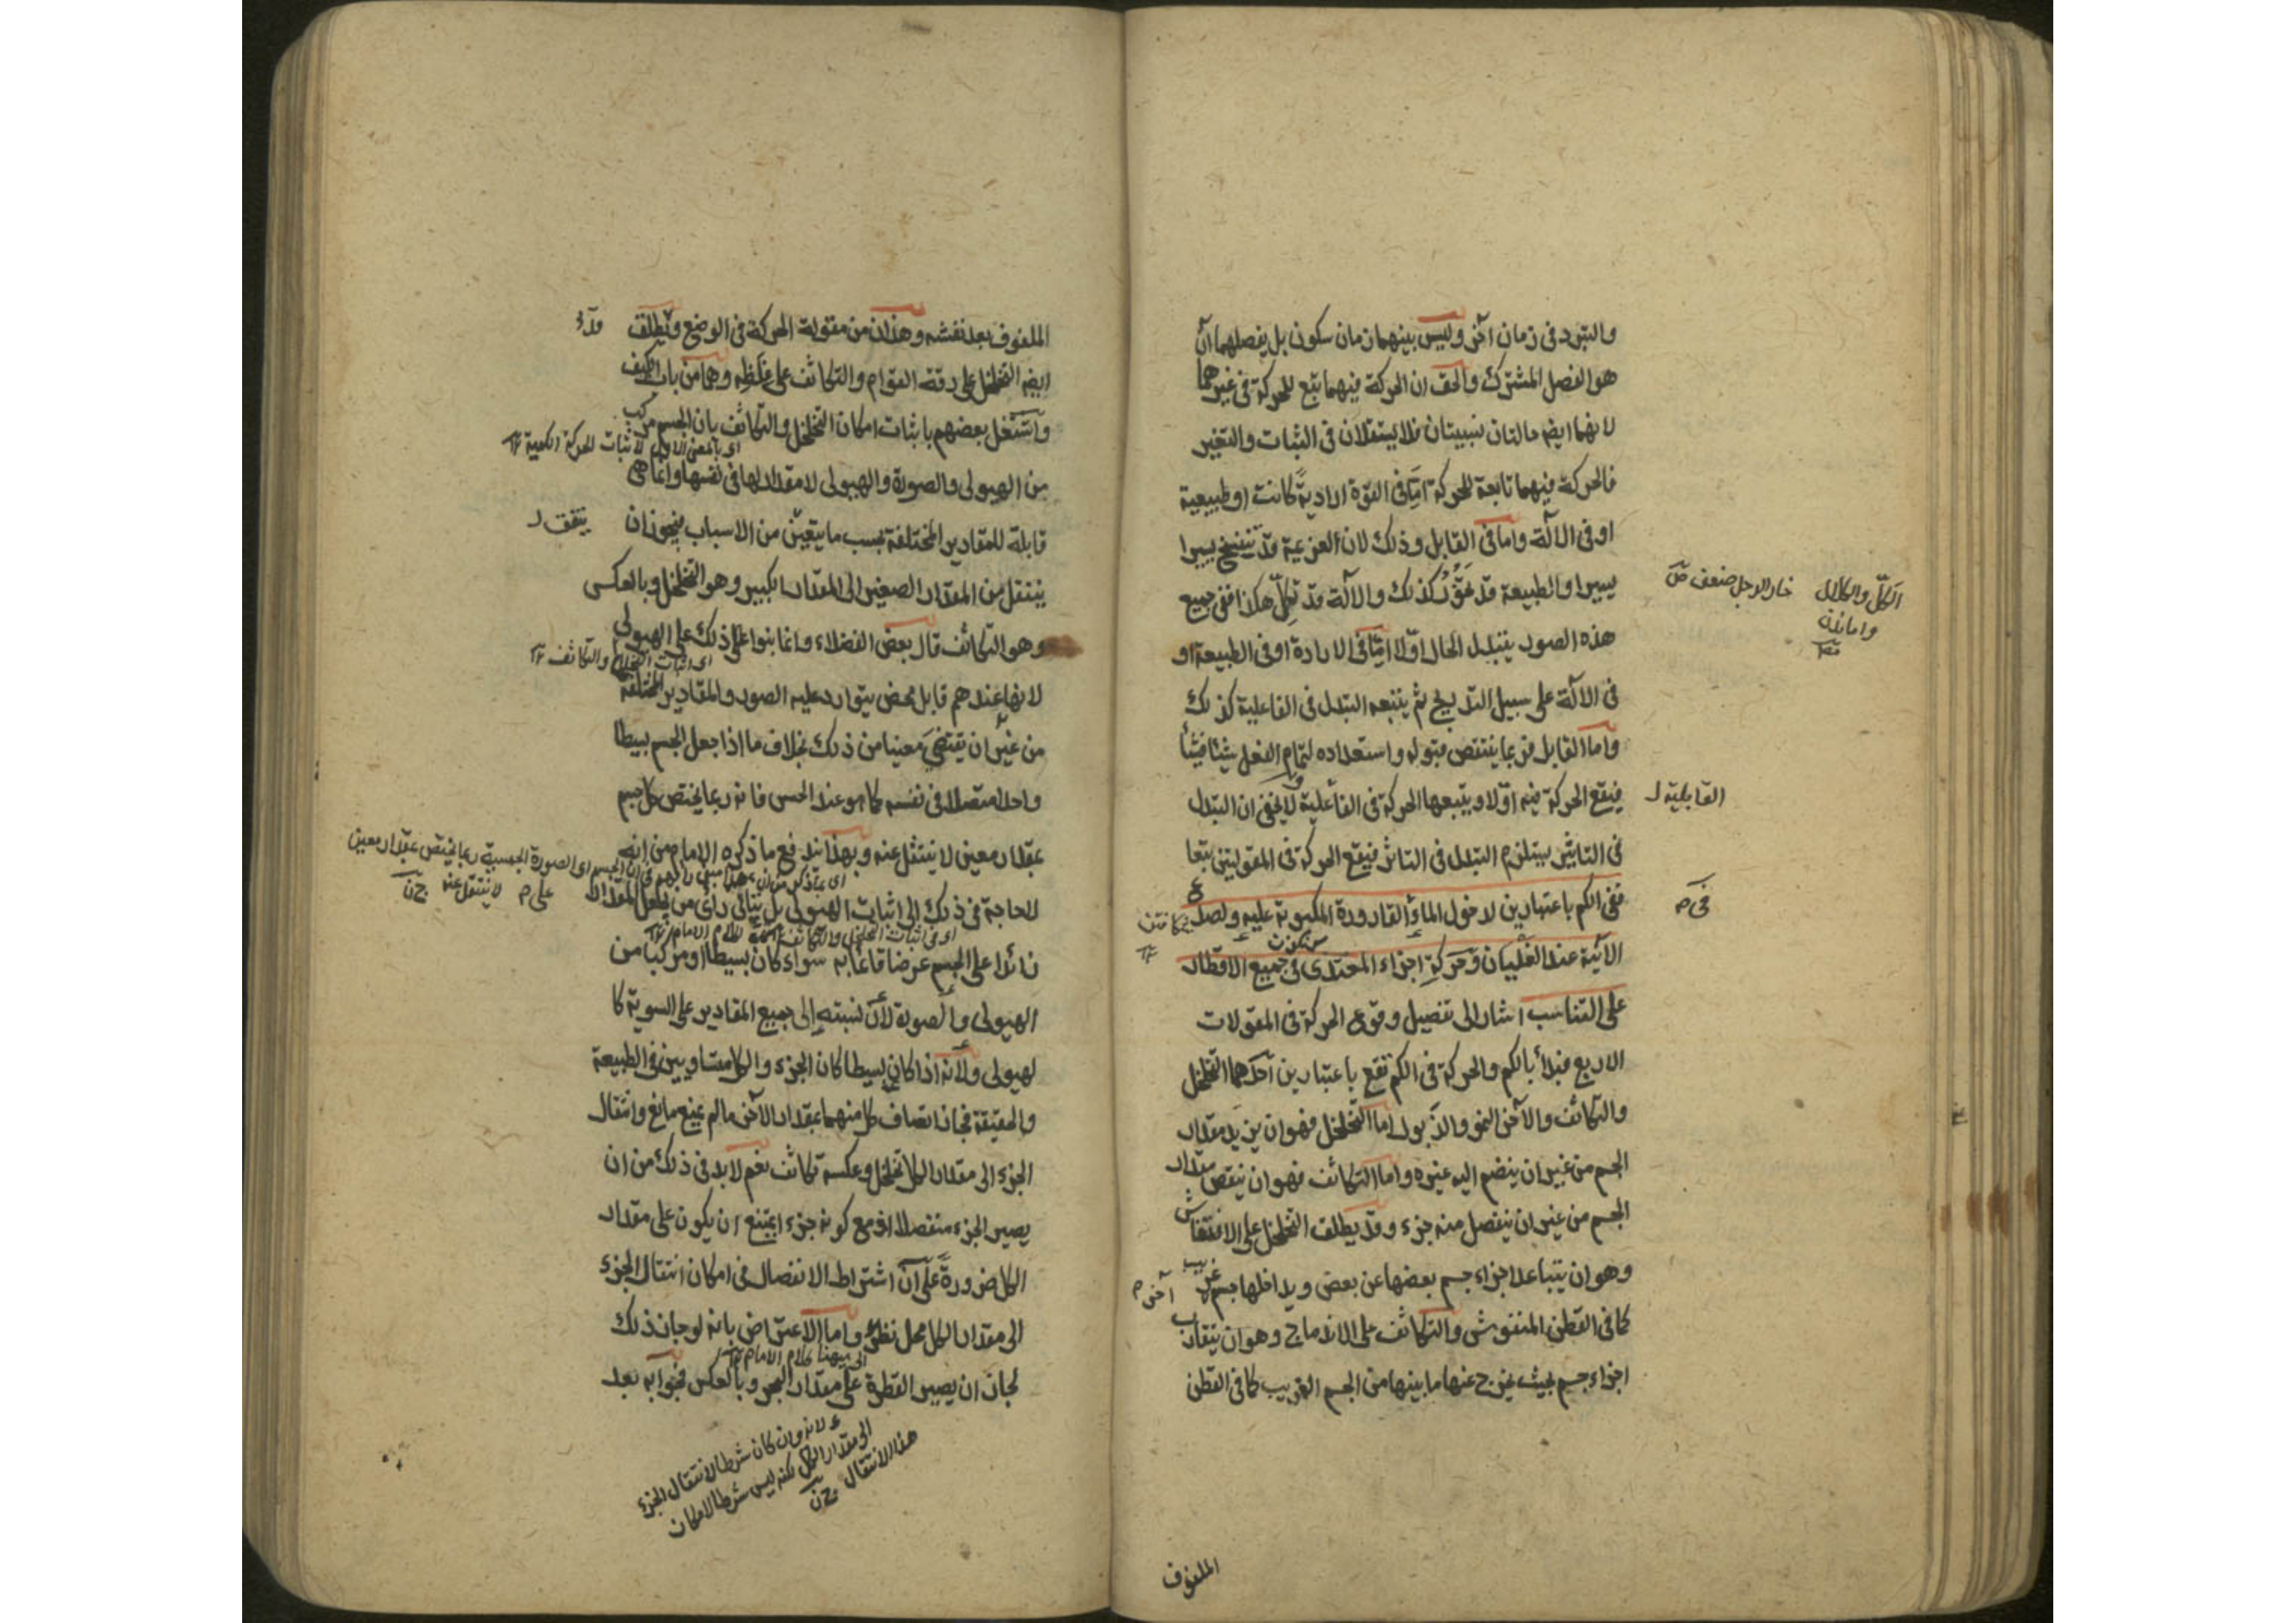 والتبرد في زمان آخر وليس بينهما زمان سكون بل يفصلهما آن
هو الفصل المشترك والحق ان الحركة فيهما تتبع للحركة في غيرهما
لانهما ايضا حالتان نسبيتان فلا يستقلان في الثبات والتغير
فالحركة فيهما تابعة للحركة اما في القوة ارادية كانت او طبيعية
او في الآلة واما في القابل وذلك لان العزيمة قد تنفسخ يسيرا
يسيرا والطبيعة قد تخور كذلك والآلة قد تكل هكذا ففي جميع
هذه الصور يتبدل الحال اولا اما في الارادة او في الطبيعة او
في الآلة على سبيل التدريج ثم يتبعه التبدل في الفاعلية كذلك
واما القابل فربما ينتقص قبوله واستعداده لتمام الفعل شيئا فشيئا
فيقع الحركة فيه اولا ويتبعها الحركة في الفاعلية ولا يخفى ان التبدل
في التاثير يستلزم التبدل في التاثر فيقع الحركة في المقولتين تبعا
ففي الكم باعتبارين لدخول الماء القارورة المكبوبة عليه ولصدع
الآنية عند الغليان وحركة اجزاء المغتذى في جميع الاقطار
على التناسب اشار الى تفصيل وقوع الحركة في المقولات
الاربع فبدأ بالكم والحركة في الكم تقع باعتبارين احدهما التخلخل
والتكاثف والآخر النمو والذبول اما التخلخل فهو ان يزيد مقدار
الجسم من غير ان ينضم اليه غيره واما التكاثف فهو ان ينقص مقدار
الجسم من غير ان ينفصل منه جزء وقد يطلق التخلخل على الانتفاش
وهو ان يتباعد اجزاء جسم بعضها عن بعض ويداخلها جسم غريب
كما في القطن المنفوش والتكاثف على الاندماج وهو ان يتقارب
اجزاء جسم بحيث يخرج عنها ما بينها من الجسم الغريب كما في القطن
الكل والكلال
القابلية
الملفوف
الملفوف بعد نفشه وهذان من مقولة الحركة في الوضع ويطلق
ايضا التخلخل على رقة القوام والتكاثف على غلظه وهما من باب الكيف
واشتغل بعضهم باثبات امكان التخلخل والتكاثف بان الجسم مركب
اي بالمعنى الاول لاثبات الحركة الكمية
من الهيولى والصورة والهيولى لا مقدار لها في نفسها وانما هي
قابلة للمقادير المختلفة بحسب ما يتعين من الاسباب فيجوز ان
ينتقل من المقدار الصغير الى المقدار الكبير وهو التخلخل وبالعكس
وهو التكاثف قال بعض الفضلاء وانما بنوا ذلك على الهيولى
اي اثبات التخلخل والتكاثف
لانها عندهم قابل محض يتوارد عليه الصور والمقادير المختلفة
من غير ان يقتضي معينا من ذلك بخلاف ما اذا جعل الجسم بسيطا
واحدا متصلا في نفسه كما هو عند الحس فانه ربما يختص كل جسم
بمقدار معين لا ينتقل عنه وبهذا ندفع ما ذكره الامام من انه
لا حاجة في ذلك الى اثبات الهيولى بل يتأتى رأي من يجعل المقدار
اي في اثبات التخلخل والتكاثف
زائدا على الجسم عرضا قائما به سواء كان بسيطا او مركبا من
الهيولى والصورة لأن نسبته إلى جميع المقادير على السوية كا
لهيولى ولأنه اذا كان بسيطا كان الجزء والكل متساويين في الطبيعة
والحقيقة فجاز اتصاف كل منهما بمقدار الآخر ما لم يمنع مانع وانتقال
الجزء الى مقدار الكل تخلخل وعكسه تكاثف نعم لابد في ذلك من ان
يصير الجزء منفصلا اذ مع كونه جزء يمتنع ان يكون على مقدار
الكل ضرورة على ان اشتراط الانفصال في امكان انتقال الجزء
الى مقدار الكل محل نظر واما الاعتراض بانه لو جاز ذلك
الى ههنا كلام الامام
لجاز ان يصير القطرة على مقدار البحر وبالعكس فجوابه بعد
لانه وان كان شرطا لانتقال الجزء
الى مقدار الكل لكنه ليس شرطا لامكان
هذا الانتقال